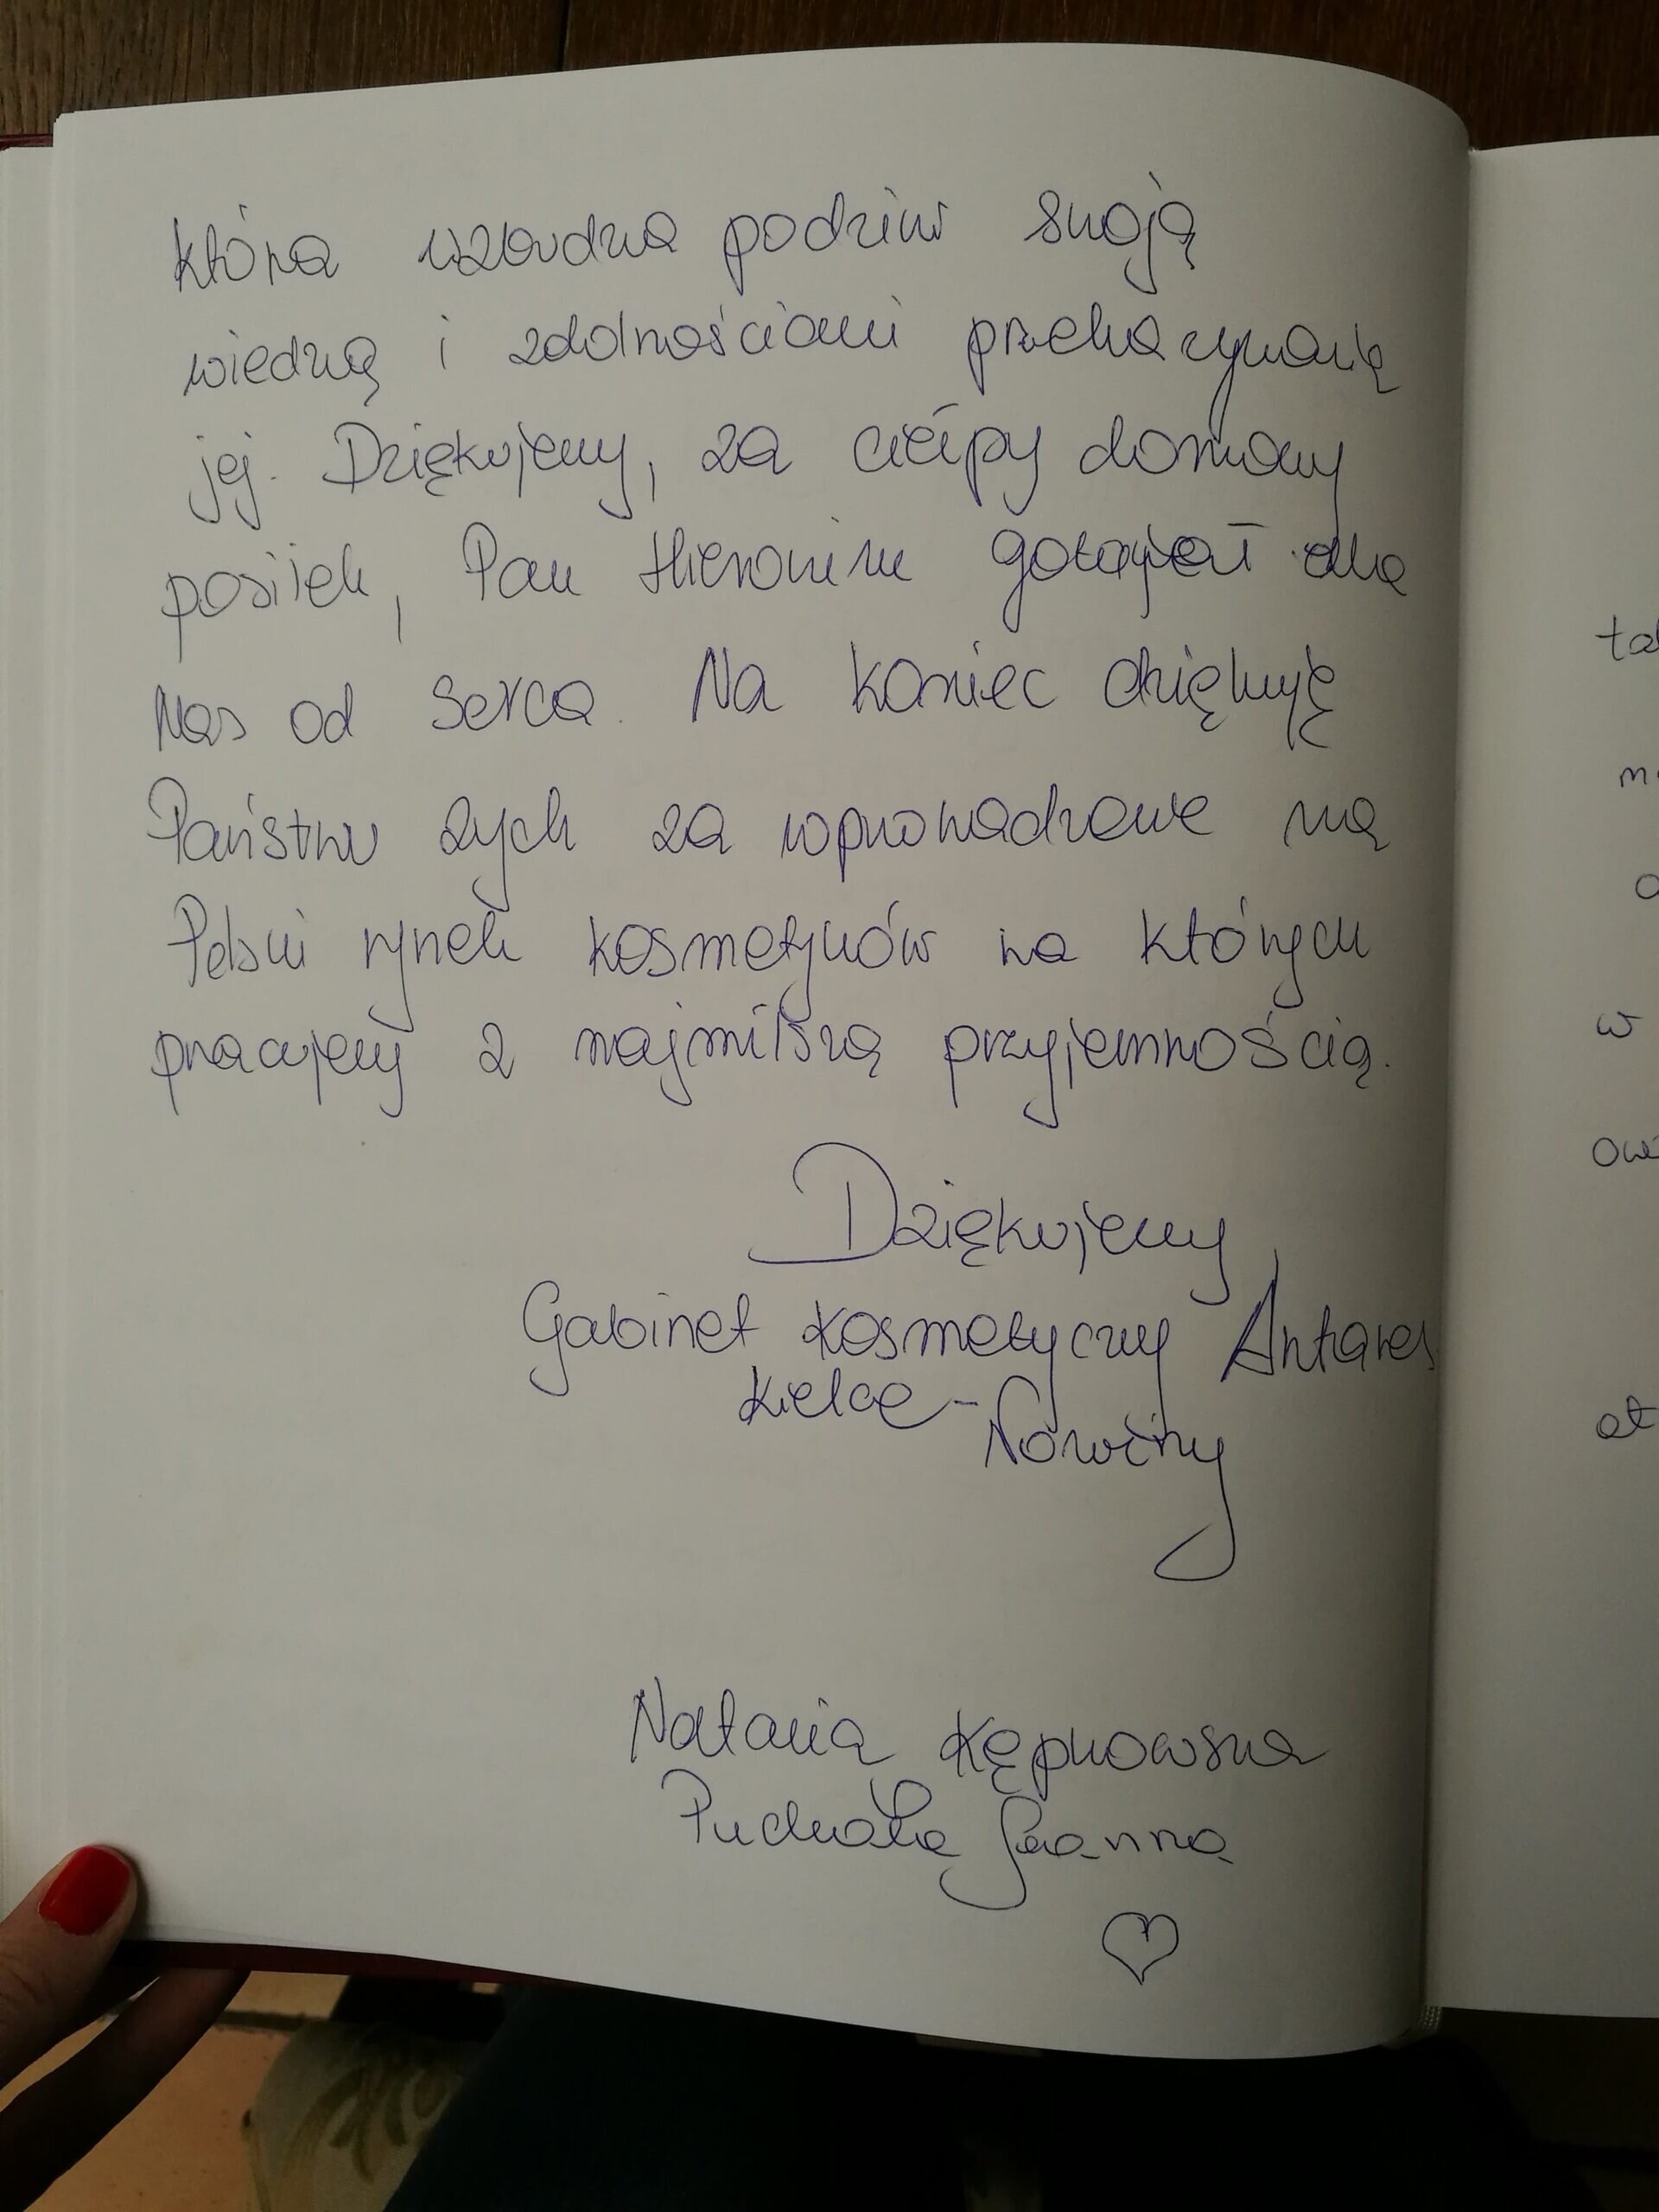 która wzbudza podziw swoją
wiedzą i zdolnościami przekazywania
jej. Dziękujemy, za ciepły domowy
posiłek, Pan Hieronim gotował dla
Nas od serca. Na koniec dziękuję
Państwu Zych za wprowadzenie na
Polski rynek kosmetyków na których
pracujemy z najmilszą przyjemnością.
Dziękujemy
Gabinet Kosmetyczny Antares
Kielce -
Nowiny
Natalia Kępkowska
Puchała Joanna
w